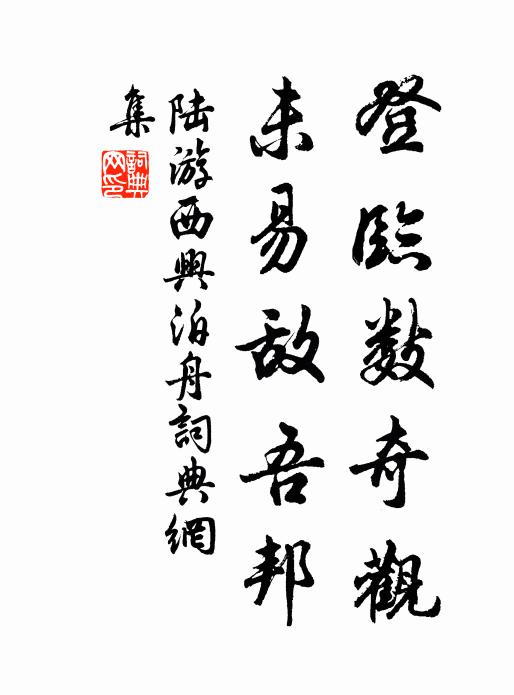 登臨數奇觀
未易敌吾邦
陆游西興泊舟詞典網
集
詞典网印